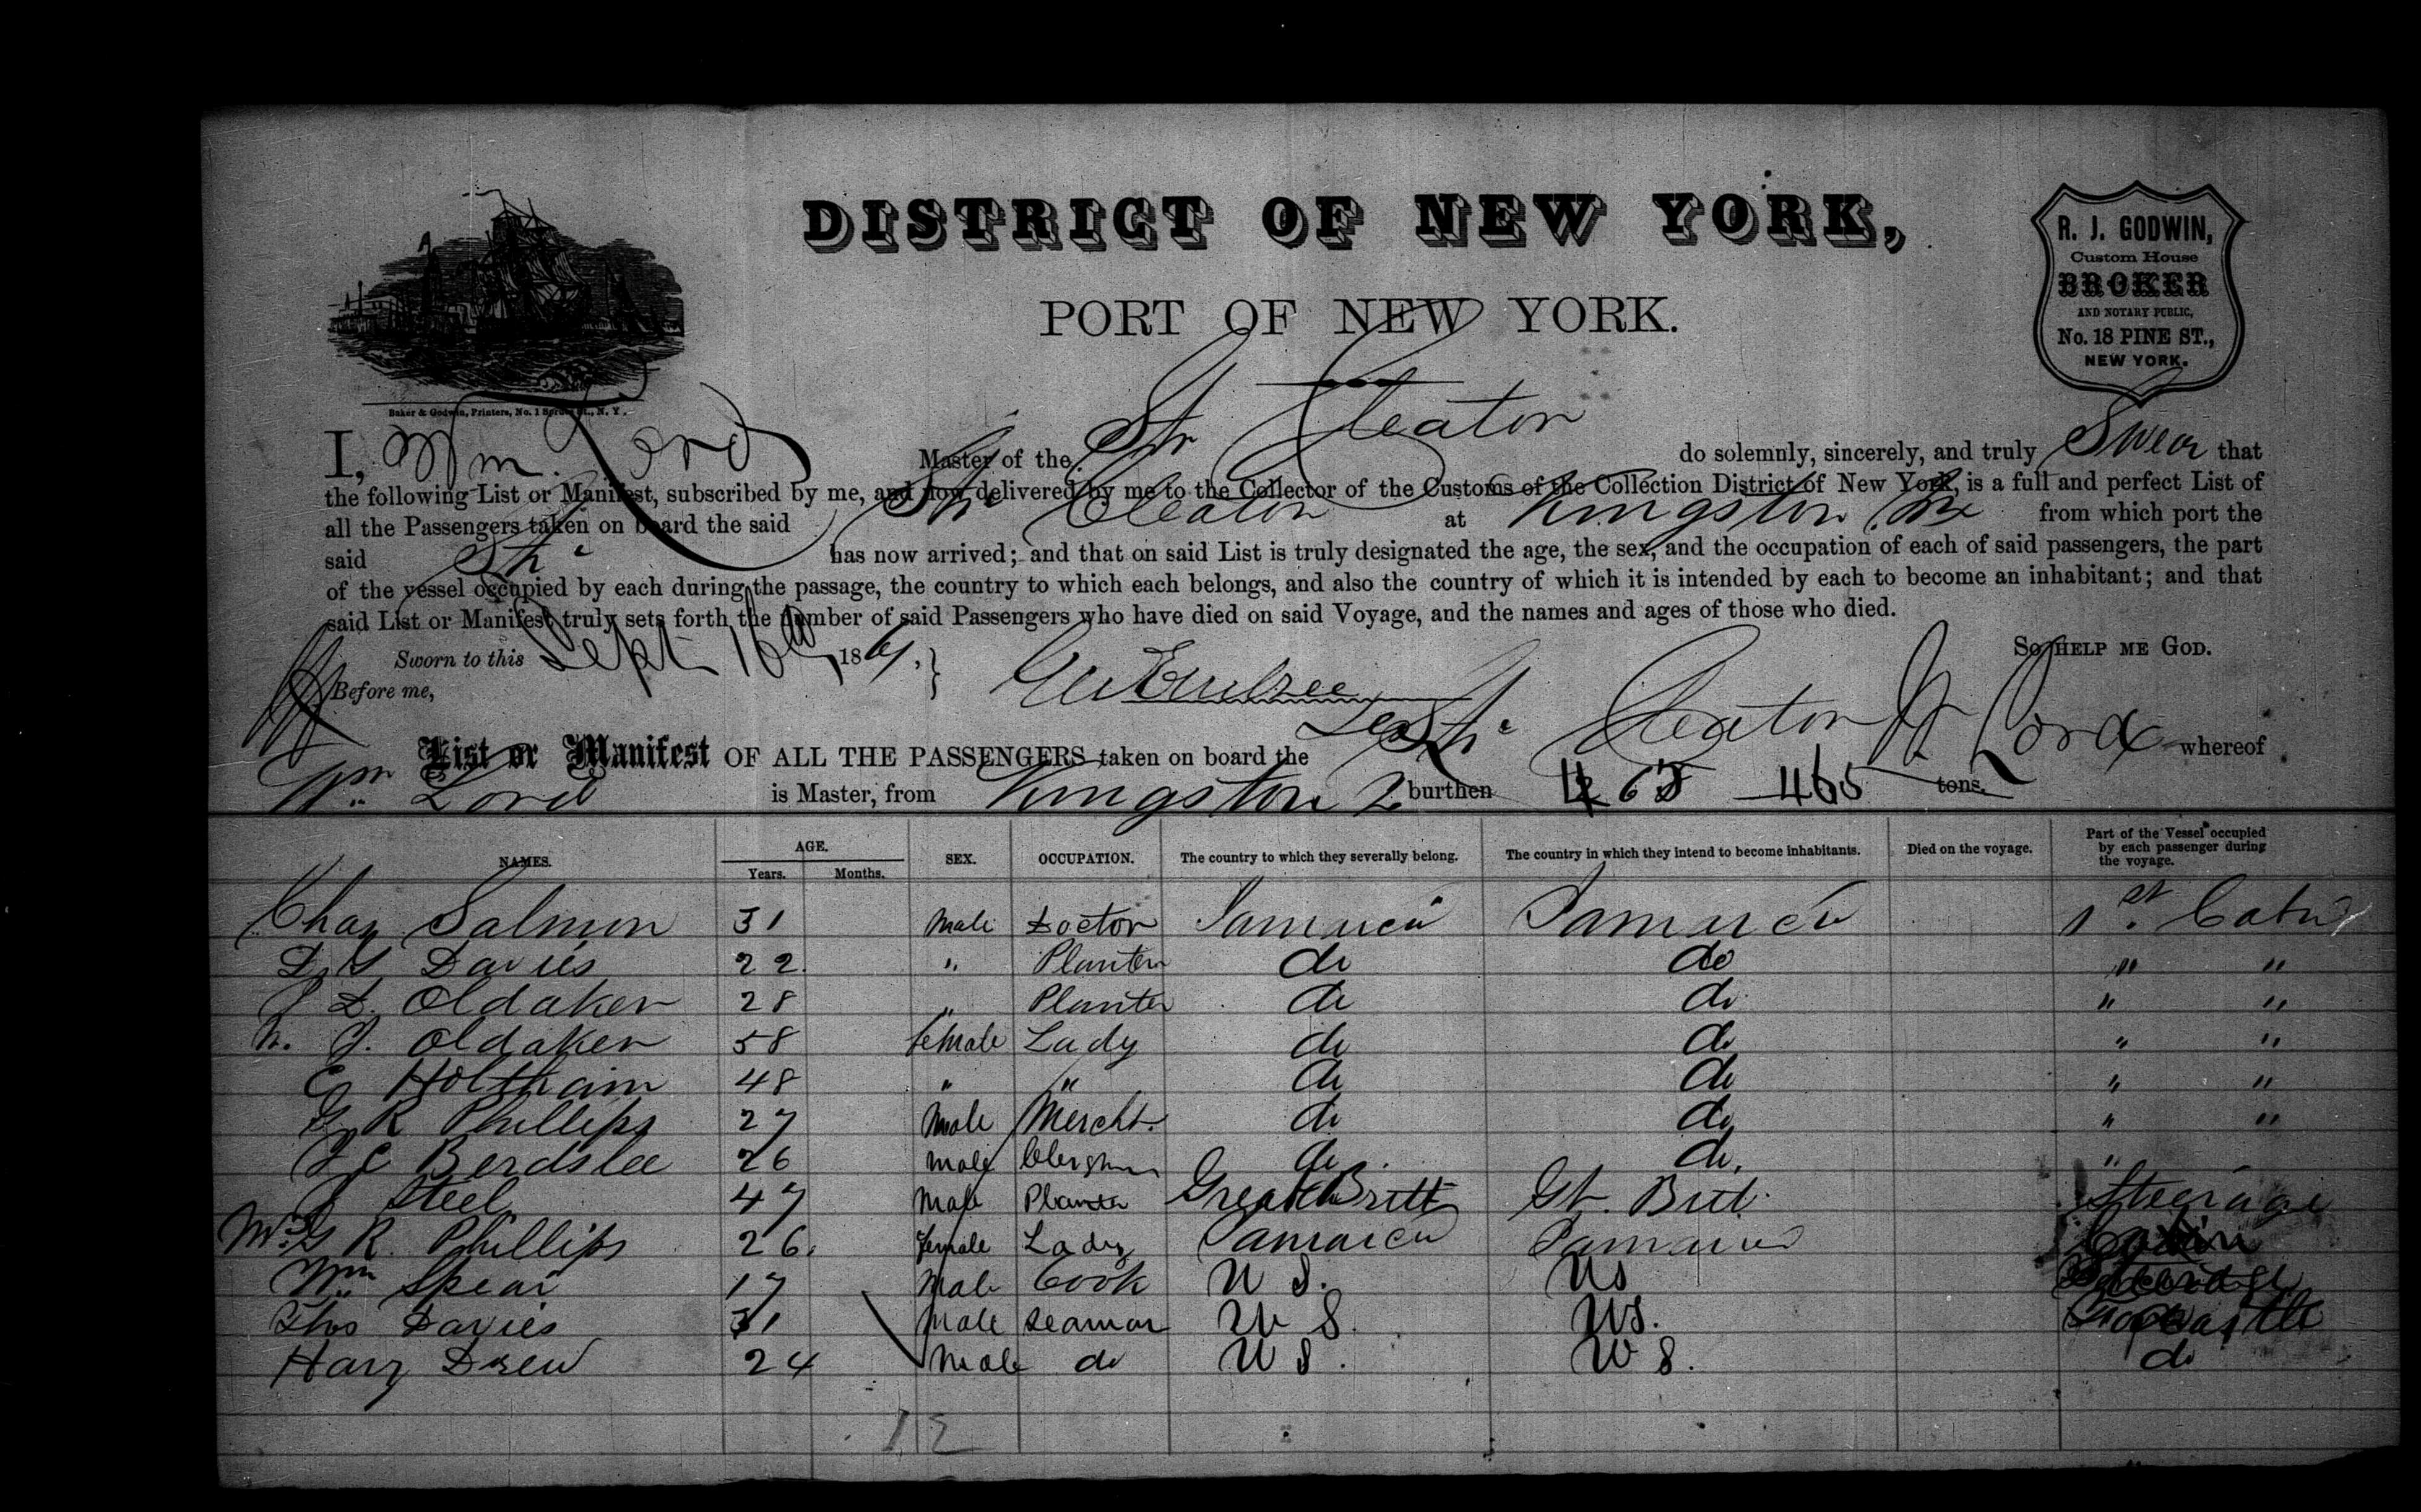 DISTRICT OF NEW YORK,
PORT OF NEW YORK.
R. J. GODWIN,
Custom House
BROKER
AND NOTARY PUBLIC,
No. 18 PINE ST.,
NEW YORK.
Baker & Godwin, Printers, No. 1 Spruce St., N. Y.
I, Wm. Lord Master of the Str Cleaton do solemnly, sincerely, and truly Swear that
the following List or Manifest, subscribed by me, and now delivered by me to the Collector of the Customs of the Collection District of New York, is a full and perfect List of
all the Passengers taken on board the said Str Cleaton at Kingston, from which port the
said Str has now arrived; and that on said List is truly designated the age, the sex, and the occupation of each of said passengers, the part
of the vessel occupied by each during the passage, the country to which each belongs, and also the country of which it is intended by each to become an inhabitant; and that
said List or Manifest truly sets forth the number of said Passengers who have died on said Voyage, and the names and ages of those who died.
Sworn to this Sept 16th, 186 SO HELP ME GOD.
Before me,
W Lord
List or Manifest OF ALL THE PASSENGERS taken on board the Str Cleaton whereof
Wm Lord is Master, from Kingston burthen 465 tons.
NAMES. AGE. SEX. OCCUPATION. The country to which they severally belong. The country in which they intend to become inhabitants. Died on the voyage. Part of the Vessel occupied by each passenger during the voyage.
Years. Months.
Chas Salmon 31 Male Doctor Jamaica Jamaica 1st. Cabin
D. Davis 22. " Planter do do " "
J D. Oldaker 28 " Planter do do " "
J. Oldaker 58 female Lady do do " "
E Holtham 48 " " do do " "
G R Phillips 27 Male Mercht. do do " "
J C Berdslee 26 male Clergman do do. "
J Steel 47 Male Planter Great Britt Gt. Brit. Steerage
Mrs G R. Phillips 26. female Lady Jamaica Jamaica Cabin
Wm Spear 17 Male Cook U S. US
Thos Davies 31 Male seaman U S. US.
Harry Drew 24 Male do U S. U S. do
12